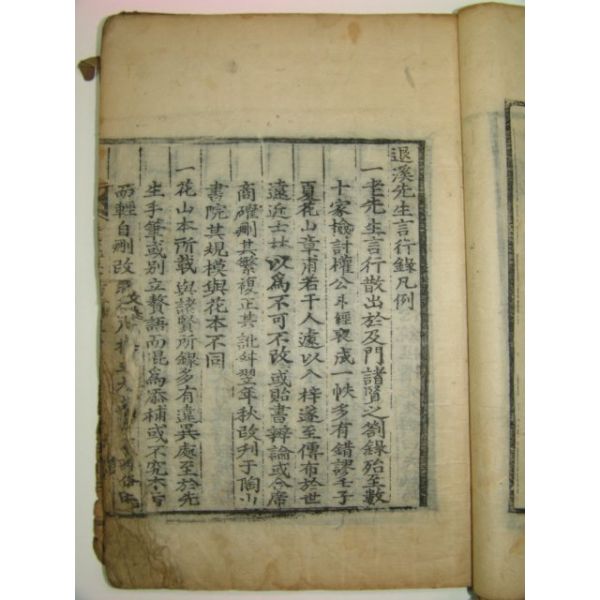 退溪先生言行錄凡例
一老先生言行散出於及門諸賢之劄錄殆至數
十家檢討權公斗經裒成一帙多有錯謬壬子
夏花山章甫若干人遽以入梓遂至傳布於世
遠近士林以爲不可不改或貽書辨論或合席
商確刪其繁複正其訛舛翌年秋改刋于陶山
書院其規模與花本不同
一花山本所載與諸賢所錄多有違異處至於先
生手筆或別立贅語而混爲添補或不究本旨
而輕自刪改